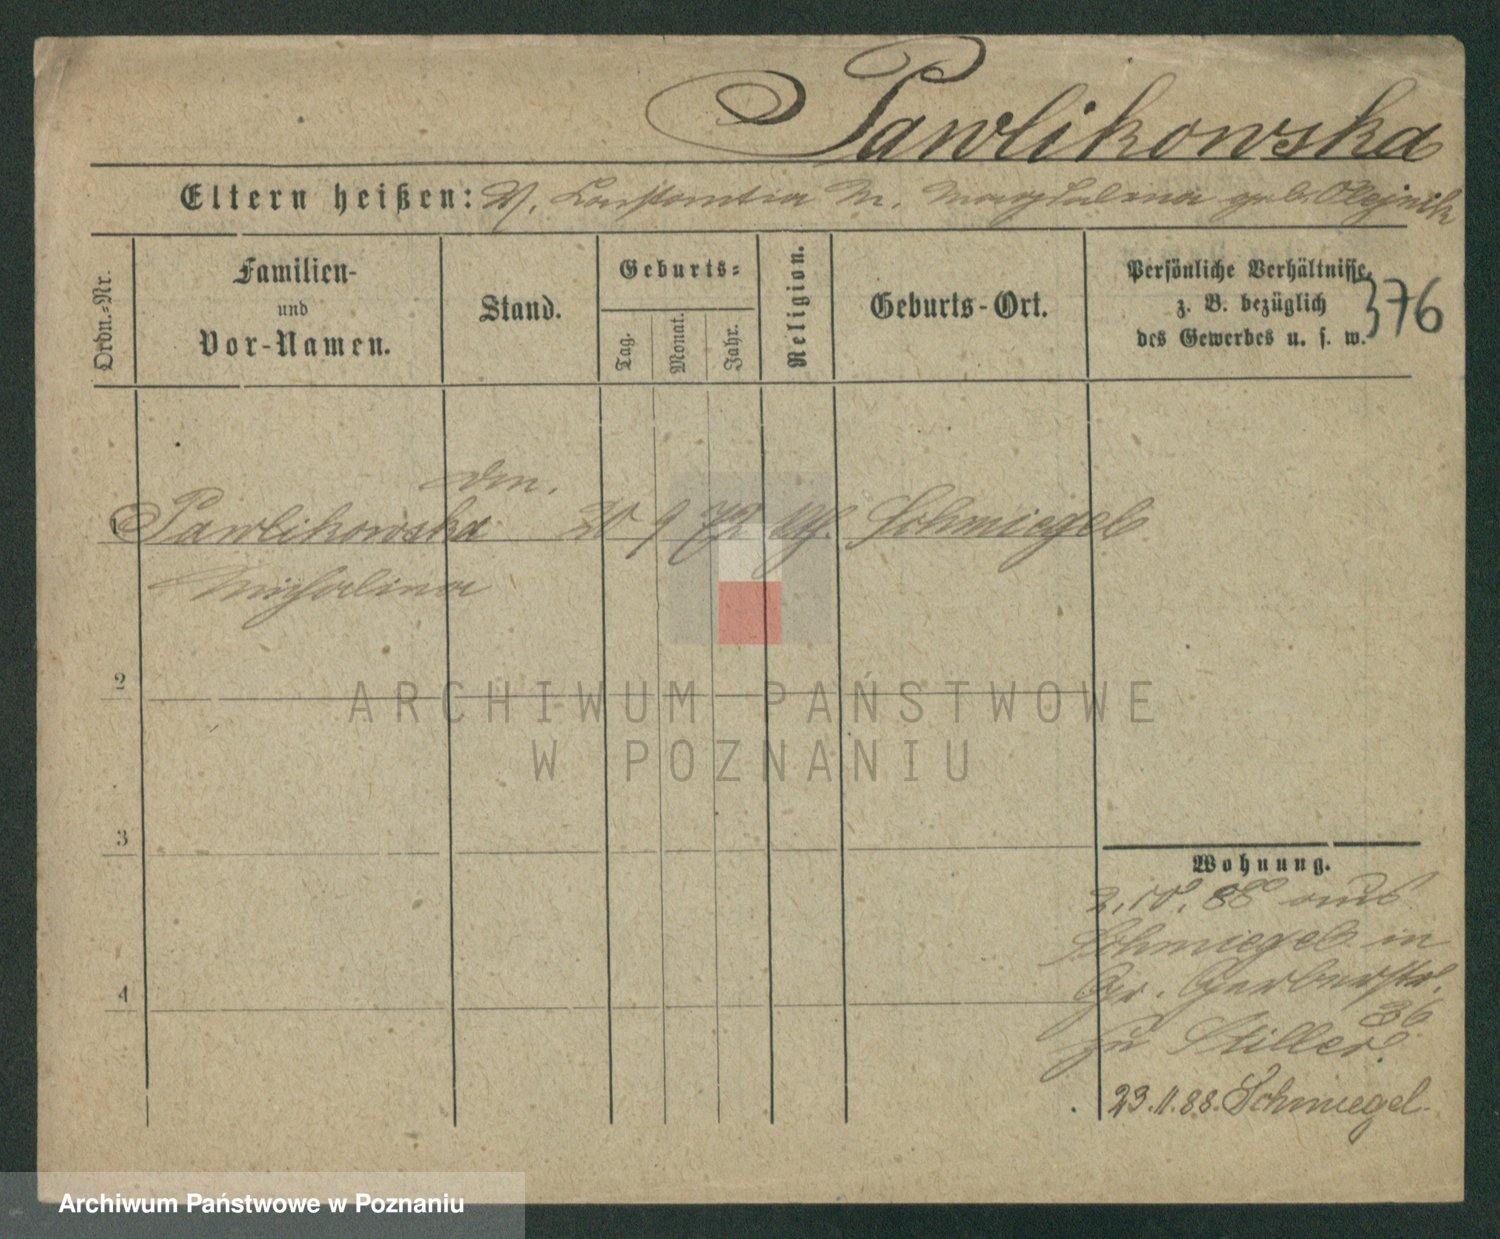 Pawlikowska
Eltern heißen: V. Constantia M. Magdalena geb. Olejnik
Ordn.-Nr.
Familien-
und
Vor-Namen.
Stand.
Geburts-
Tag.
Monat.
Jahr.
Religion.
Geburts-Ort.
Persönliche Verhältnisse,
z. B. bezüglich
des Gewerbes u. s. w.
376
1 Pawlikowska 9 72 Schmiegel
Michalina
2
ARCHIWUM PAŃSTWOWE
W POZNANIU
3
Wohnung.
88 aus
Schmiegel in
Gr. Gerberstr.
36
zu Stiller.
4
23.11.88. Schmiegel.
Archiwum Państwowe w Poznaniu